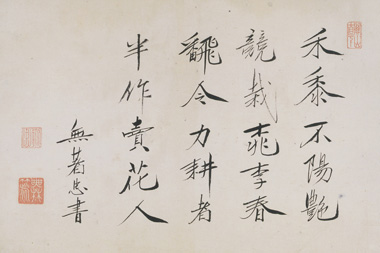 禾黍不陽艶
競栽桃李春
飜令力耕者
半作賣花人
無著忠書